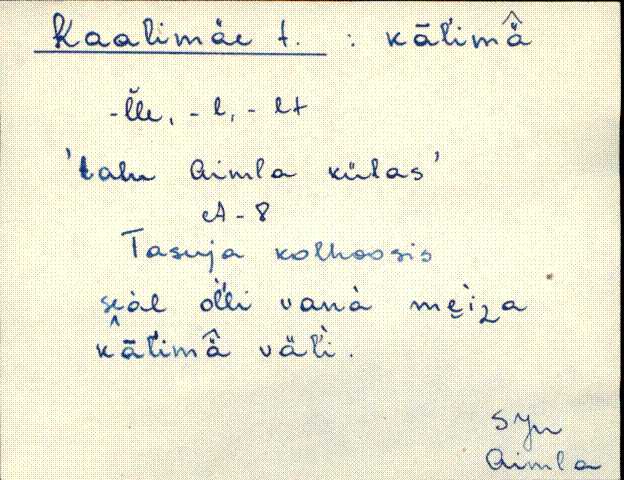 Kaalimäe t. : kāľimä̂
-l̆le, -l, -lt
'talu Aimla külas'
A-8
Tasuja kolhoosis
seàl ol̀'li vanà mȩiza
kāľimä̂ väľì.
SJn
Aimla